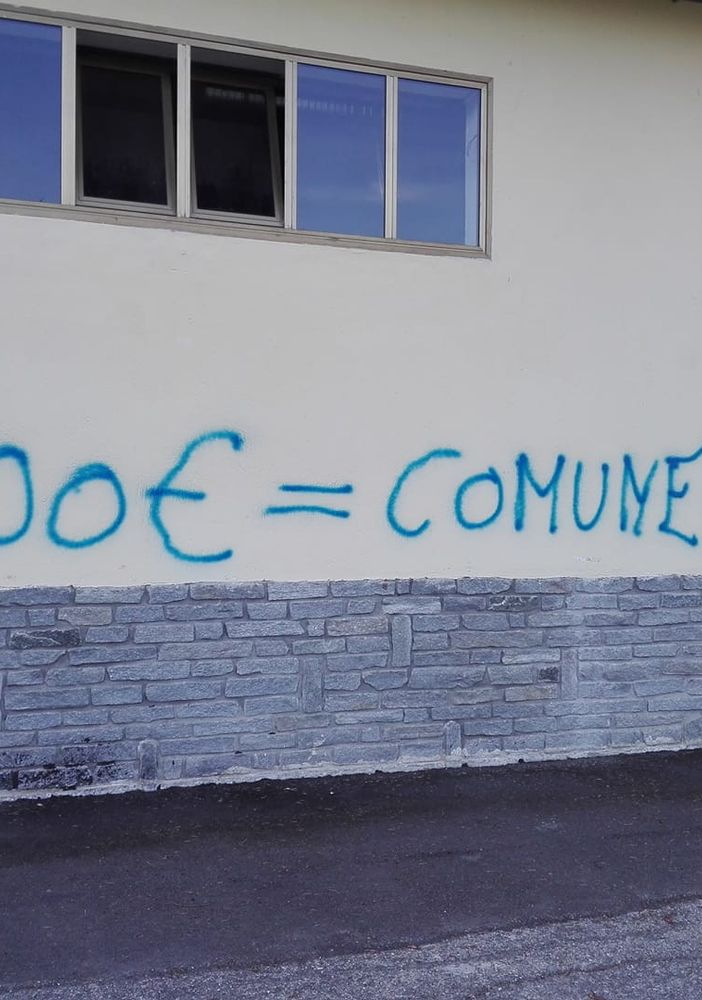 00€ = COMUNE